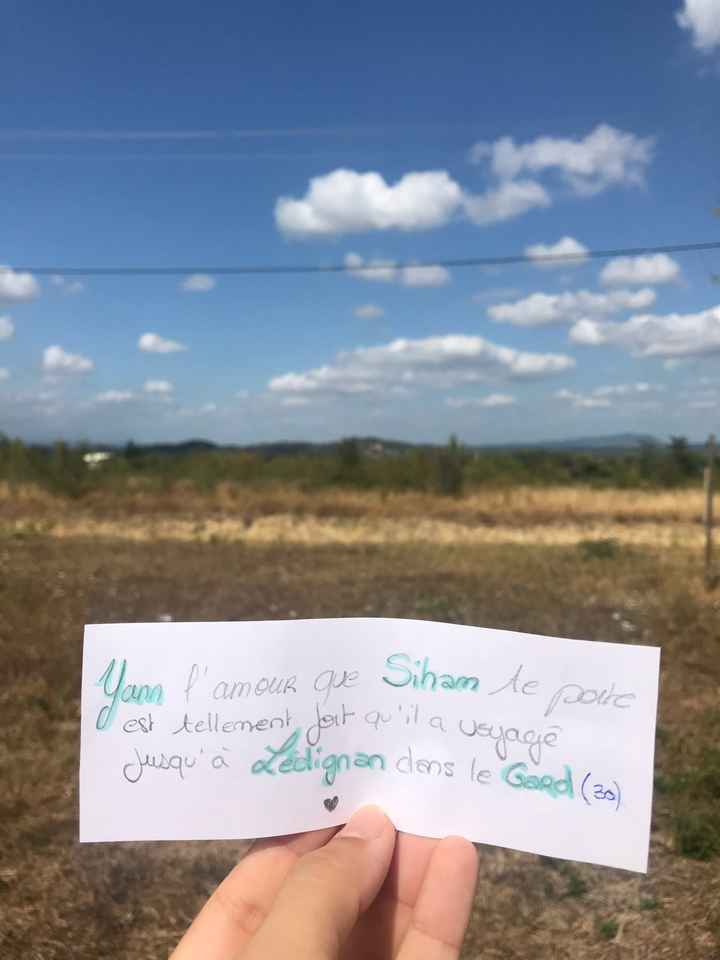 Yann l'amour que Siham te porte
est tellement fort qu'il a voyagé
jusqu'à Lédignan dans le Gard (30)